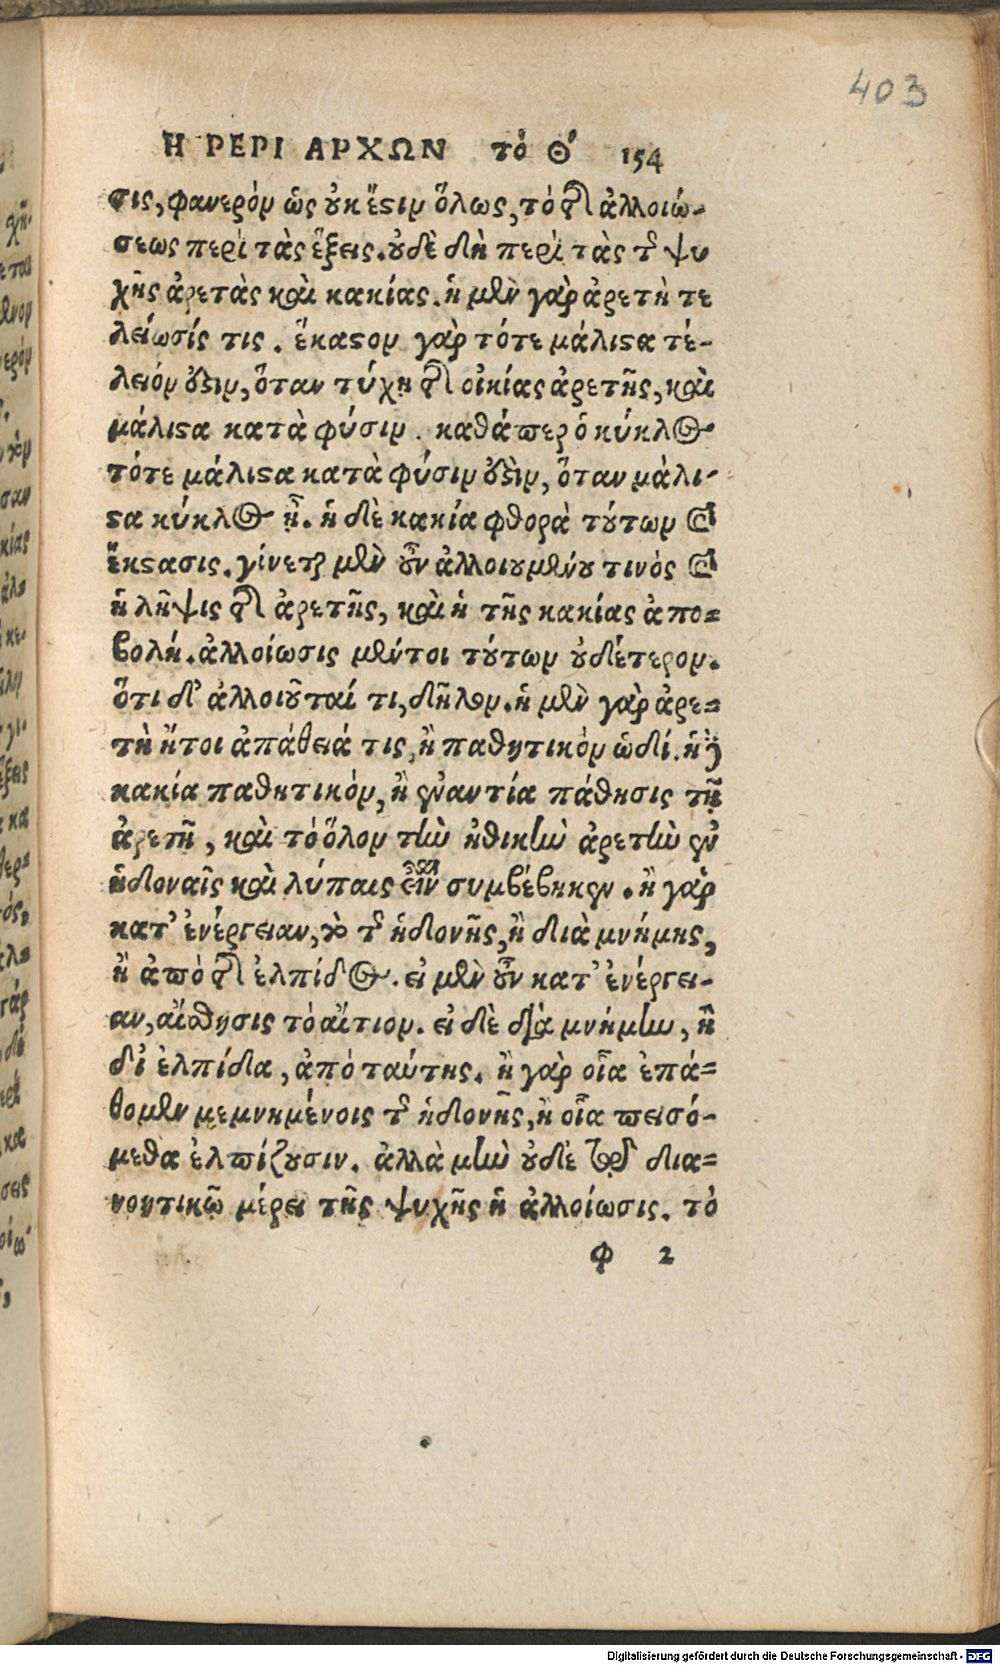 403
Η ΡΕΡΙ ΑΡΧΩΝ τὸ Θ′ 154
σις, φανερὸν ὡς οὐκ ἔστιν ὅλως, τὸ τῆς ἀλλοιώ-
σεως περὶ τὰς ἕξεις. οὐδὲ δὴ περὶ τὰς τῆς ψυ
χῆς ἀρετὰς καὶ κακίας. ἡ μὲν γὰρ ἀρετὴ τε
λείωσίς τις. ἕκαστον γὰρ τότε μάλιστα τέ-
λειόν ἐστιν, ὅταν τύχῃ τῆς οἰκίας ἀρετῆς, καὶ
μάλιστα κατὰ φύσιν. καθάπερ ὁ κύκλος
τότε μάλιστα κατὰ φύσιν ἐστὶν, ὅταν μάλι-
στα κύκλος ᾖ. ἡ δὲ κακία φθορὰ τούτων καὶ
ἔκστασις. γίνεται μὲν οὖν ἀλλοιουμένου τινὸς καὶ
ἡ λῆψις τῆς ἀρετῆς, καὶ ἡ τῆς κακίας ἀπο=
βολή. ἀλλοίωσις μέντοι τούτων οὐδέτερον.
ὅτι δ' ἀλλοιοῦταί τι, δῆλον. ἡ μὲν γὰρ ἀρε=
τὴ ἤτοι ἀπάθειά τις, ἢ παθητικὸν ὡδί. ἡ δὲ
κακία παθητικόν, ἢ ἐναντία πάθησις τῇ
ἀρετῇ, καὶ τὸ ὅλον τὴν ἠθικὴν ἀρετὴν ἐν
ἡδοναῖς καὶ λύπαις εἶναι συμβέβηκεν. ἢ γὰρ
κατ' ἐνέργειαν, τὸ τῆς ἡδονῆς, ἢ διὰ μνήμης,
ἢ ἀπὸ τῆς ἐλπίδος. εἰ μὲν οὖν κατ' ἐνέργει-
αν, αἴσθησις τὸ αἴτιον. εἰ δὲ διὰ μνήμην, ἢ
δι' ἐλπίδα, ἀπὸ ταύτης. ἢ γὰρ οἷα ἐπά=
θομεν μεμνημένοις τῆς ἡδονῆς, ἢ οἷα πεισό-
μεθα ἐλπίζουσιν. ἀλλὰ μὴν οὐδὲ ἐν τῷ δια=
νοητικῷ μέρει τῆς ψυχῆς ἡ ἀλλοίωσις. τὸ
φ 2
Digitalisierung gefördert durch die Deutsche Forschungsgemeinschaft - DFG